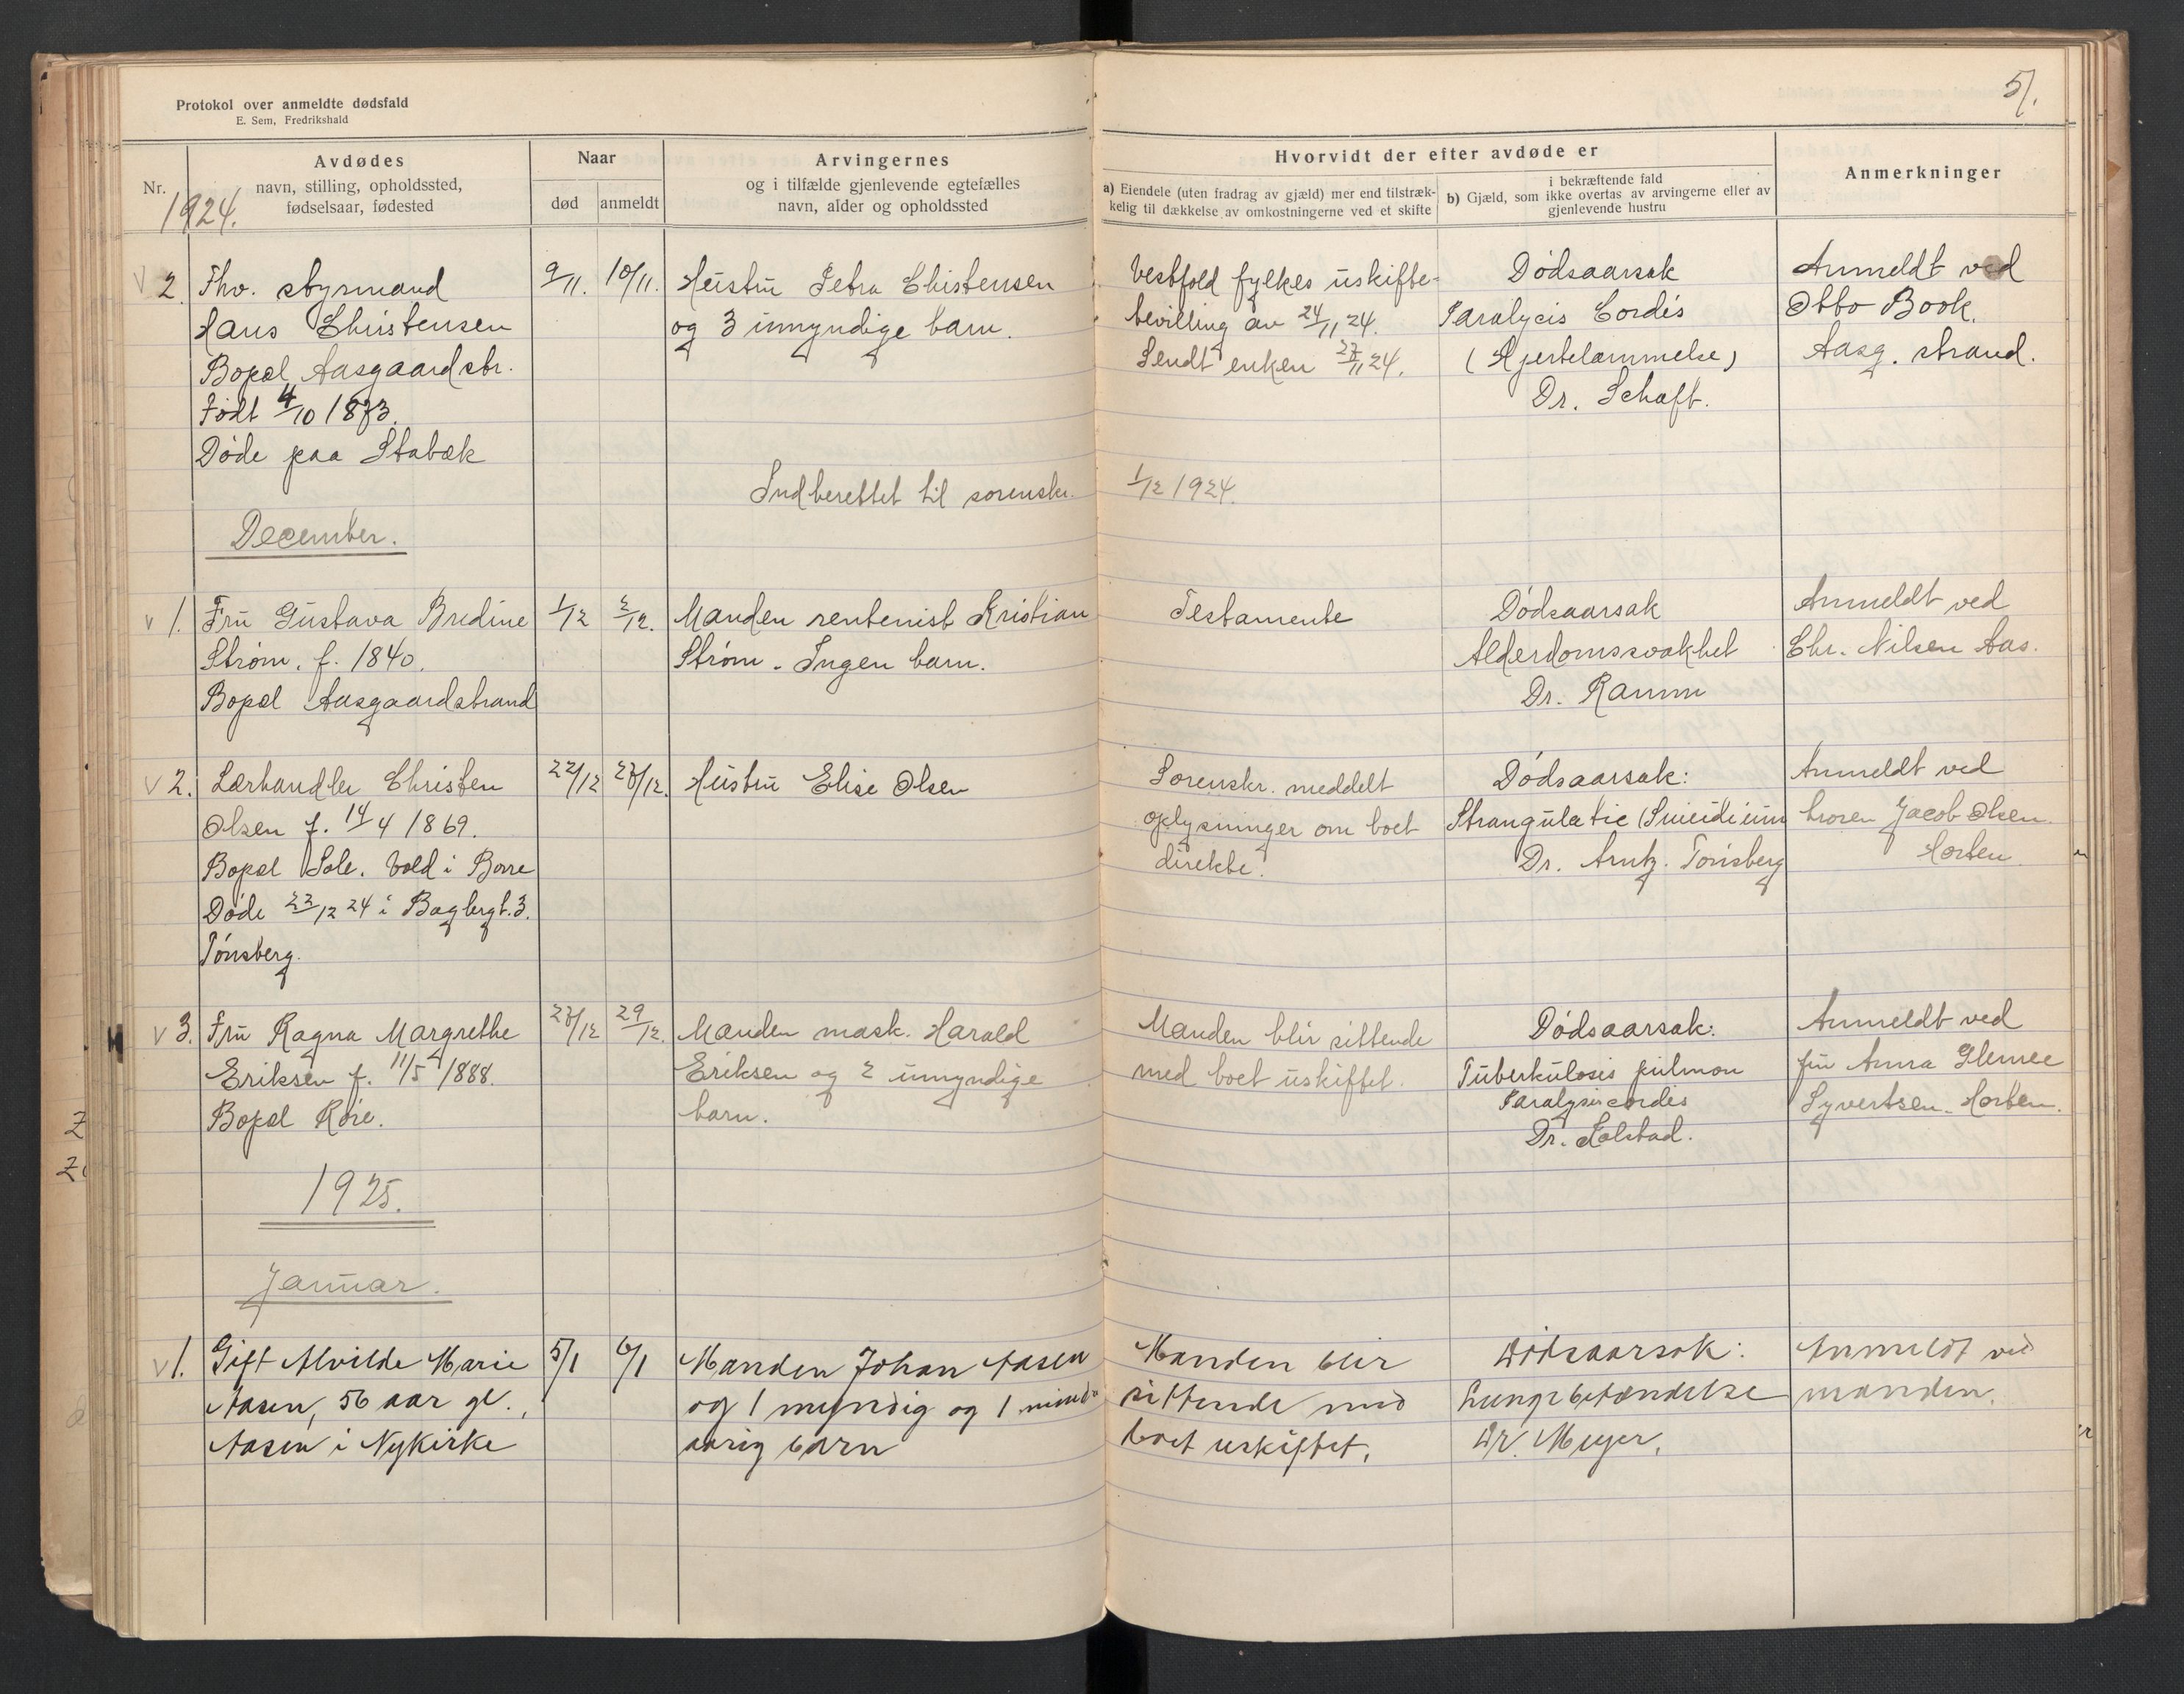 Protokol over anmeldte dødsfald
E. Sem, Fredrikshald
51.
Nr.
1924.
Avdødes
navn, stilling, opholdssted,
fødselsaar, fødested
Naar
død
anmeldt
Arvingernes
og i tilfælde gjenlevende egtefælles
navn, alder og opholdssted
Hvorvidt der efter avdøde er
a) Eiendele (uten fradrag av gjæld) mer end tilstræk-
kelig til dækkelse av omkostningerne ved et skifte
i bekræftende fald
b) Gjæld, som ikke overtas av arvingerne eller av
gjenlevende hustru
Anmerkninger
v 2.
Fhv. styrmand
Hans Christensen
Bopæl Aasgaardstr.
Født 4/10 1873.
Døde paa Stabæk
9/11.
10/11.
Hustru Petra Christensen
og 3 umyndige barn.
Vestfold fylkes uskifte-
bevilling av 24/11 24.
Sendt enken 27/11 24.
Dødsaarsak
Paralycis Cordis
(Hjertelammelse)
Dr. Schaft.
Anmeldt ved
Otto Book.
Aasg. strand.
Indberettet til sorenskr. 1/12 1924.
December.
v 1.
Fru Gustava Bredine
Strøm. f. 1840.
Bopæl Aasgaardstrand
1/12
2/12.
Manden rentenist Kristian
Strøm. Ingen barn.
Testamente
Dødsaarsak
Alderdomssvakhet
Dr. Ramm
Anmeldt ved
Chr. Nilsen Aas.
v 2.
Lærhandler Christen
Olsen f. 14/4 1869.
Bopæl Sole. Vold i Borre
Døde 22/12 24 i Baglergt. 3.
Tønsberg.
22/12
27/12.
Hustru Elise Olsen
Sorenskr. meddelt
oplysninger om boet
direkte.
Dødsaarsak:
Strangulatie (Suicidium
Dr. Arntz. Tønsberg
Anmeldt ved
broren Jacob Olsen.
Horten.
v 3.
Fru Ragna Margrethe
Eriksen f. 11/5 1888.
Bopæl Røre.
27/12
29/12.
Manden mask. Harald
Eriksen og 2 umyndige
barn.
Manden blir sittende
med boet uskiftet.
Dødsaarsak:
Tuberkulosis pulmon
Paralysis cordis
Dr. Solstad.
Anmeldt ved
fru Anna
Syvertsen. Horten.
1925.
Januar.
v 1.
Gift Alvilde Marie
Aasen, 56 aar gl.,
Aasen i Nykirke
5/1
6/1
Manden Johan Aasen
og 1 myndig og 1 mindre
aarig barn
Manden blir
sittende med
boet uskiftet.
Dødsaarsak:
Lungebetændelse
Dr. Meyer.
Anmeldt ved
manden.